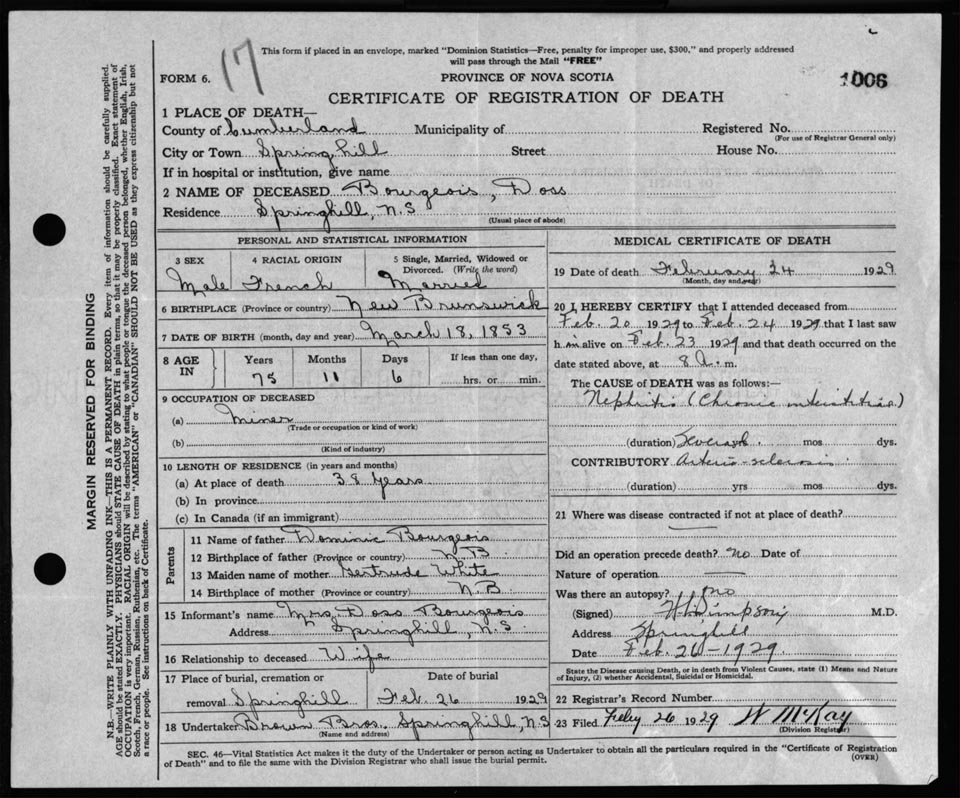 17
This form if placed in an envelope, marked "Dominion Statistics—Free, penalty for improper use, $300," and properly addressed
will pass through the Mail "FREE"
FORM 6.
PROVINCE OF NOVA SCOTIA
1006
CERTIFICATE OF REGISTRATION OF DEATH
1 PLACE OF DEATH—
County of Cumberland Municipality of Registered No.
(For use of Registrar General only)
City or Town Springhill Street House No.
If in hospital or institution, give name
2 NAME OF DECEASED Bourgeois, Doss
Residence Springhill, N.S
(Usual place of abode)
PERSONAL AND STATISTICAL INFORMATION
3 SEX 4 RACIAL ORIGIN 5 Single, Married, Widowed or
Divorced. (Write the word)
Male French Married
6 BIRTHPLACE (Province or country) New Brunswick
7 DATE OF BIRTH (month, day and year) March 18, 1853
8 AGE IN Years Months Days If less than one day,
75 11 6 hrs. or min.
9 OCCUPATION OF DECEASED
(a) Miner
(Trade or occupation or kind of work)
(b)
(Kind of industry)
10 LENGTH OF RESIDENCE (in years and months)
(a) At place of death 38 years
(b) In province
(c) In Canada (if an immigrant)
Parents
11 Name of father Dominic Bourgeois
12 Birthplace of father (Province or country) N.B
13 Maiden name of mother Gertrude White
14 Birthplace of mother (Province or country) N.B
15 Informant's name Mrs. Doss Bourgeois
Address Springhill, N.S.
16 Relationship to deceased Wife
17 Place of burial, cremation or Date of burial
removal Springhill Feb. 26 1929
18 Undertaker Brown Bros. Springhill, N.S
(Name and address)
MEDICAL CERTIFICATE OF DEATH
19 Date of death February 24 1929
(Month, day and year)
20 I, HEREBY CERTIFY that I attended deceased from
Feb. 20 1929 to Feb. 24 1929 that I last saw
h im alive on Feb. 23 1929 and that death occurred on the
date stated above, at 8 a. m.
The CAUSE of DEATH was as follows:—
Nephritis (Chronic interstitial)
(duration) Several yrs. mos dys.
CONTRIBUTORY Arterio-sclerosis
(duration) yrs mos dys.
21 Where was disease contracted if not at place of death?
Did an operation precede death? no Date of
Nature of operation —
Was there an autopsy? no
(Signed) Simpson M.D.
Address Springhill
Date Feb. 26 - 1929.
State the Disease causing Death, or in death from Violent Causes, state (1) Means and Nature
of Injury, (2) whether Accidental, Suicidal or Homicidal.
22 Registrar's Record Number
23 Filed Feby 26 1929 W McKay
(Division Registrar)
SEC. 46—Vital Statistics Act makes it the duty of the Undertaker or person acting as Undertaker to obtain all the particulars required in the "Certificate of Registration
of Death" and to file the same with the Division Registrar who shall issue the burial permit.
(OVER)
MARGIN RESERVED FOR BINDING
N.B.—WRITE PLAINLY WITH UNFADING INK—THIS IS A PERMANENT RECORD. Every item of information should be carefully supplied.
AGE should be stated EXACTLY. PHYSICIANS should STATE CAUSE OF DEATH in plain terms, so that it may be properly classified. Exact statement of
OCCUPATION is very important. RACIAL ORIGIN will be described by stating to what people or tongue the deceased person belonged, whether English, Irish,
Scotch, French, German, Russian, Ruthenian, etc. The terms "AMERICAN" or "CANADIAN" SHOULD NOT BE USED as they express citizenship but not
a race or people. See instructions on back of Certificate.